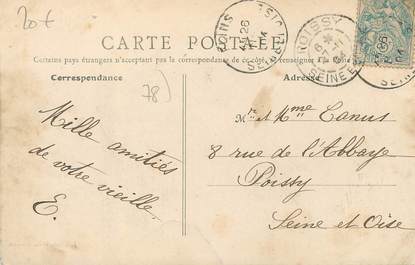 20€
CARTE POSTALE
Certains pays étrangers n'acceptant pas la correspondance de ce côté, se renseigner
Correspondance
Adresse
78)
POISSY
SEINE
Mille amitiés
de votre vieille
E.
Mr et Mme Canus
8 rue de l'Abbaye
Poissy
Seine et Oise